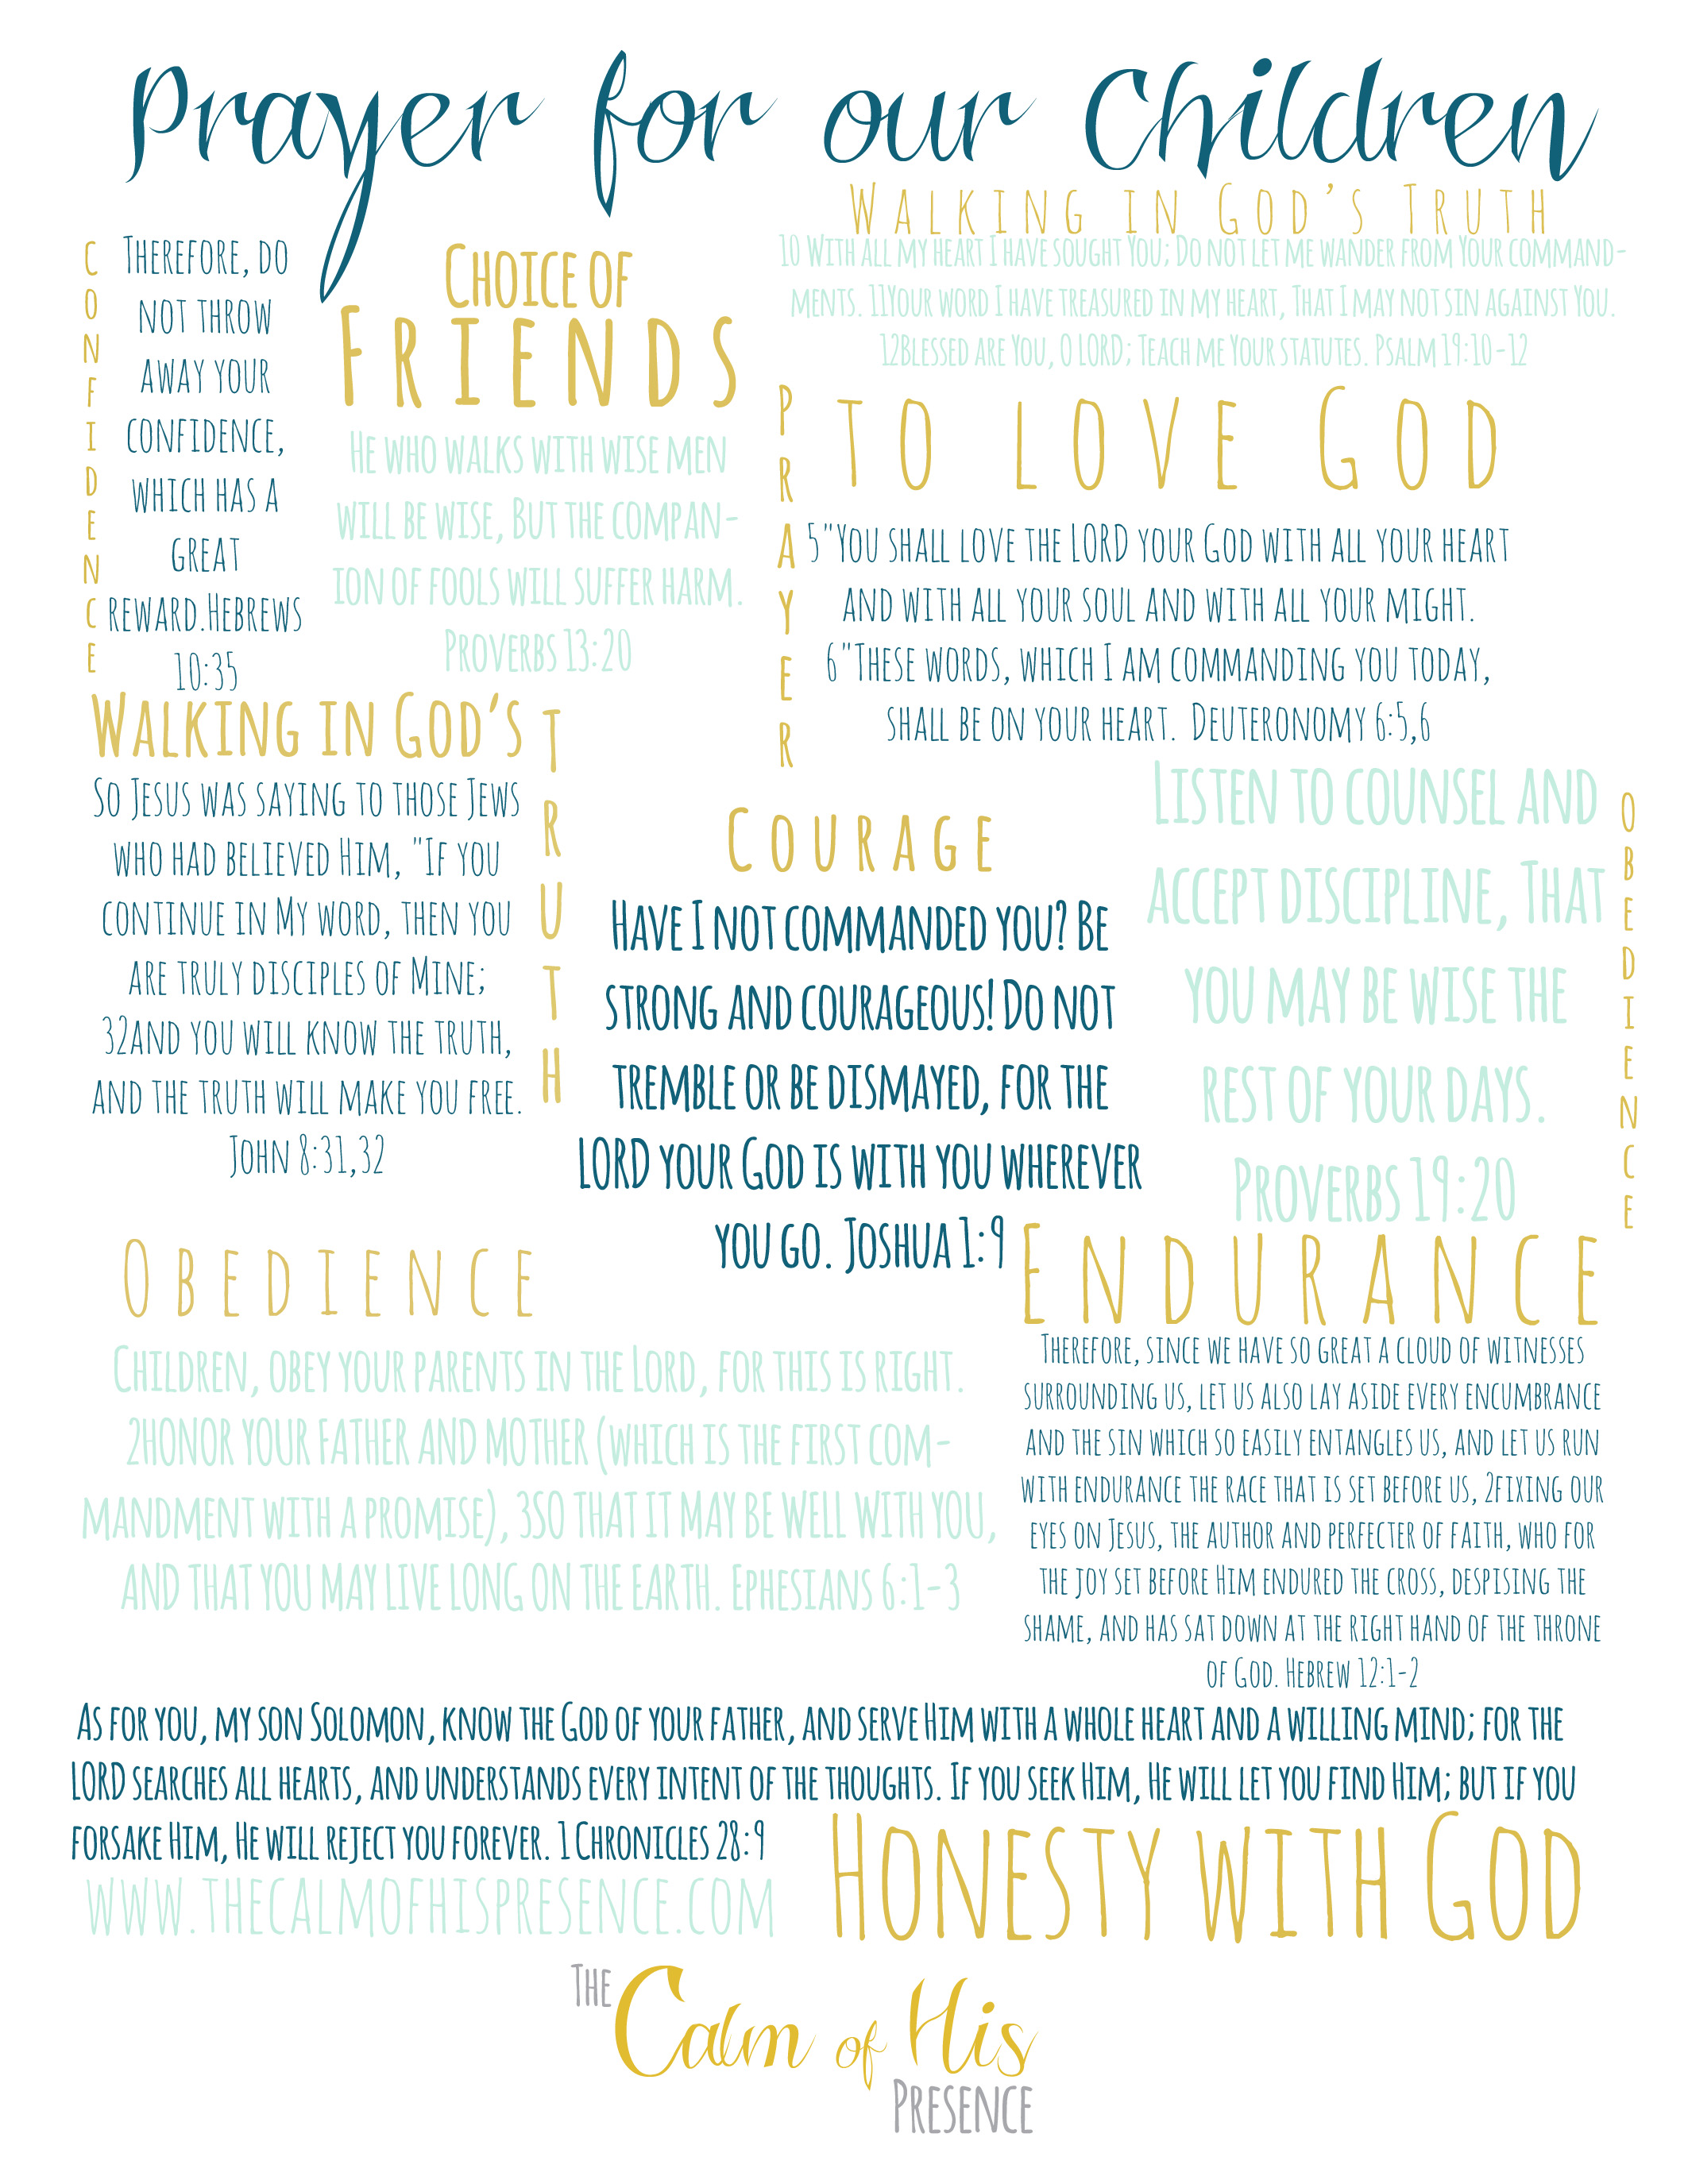 Prayer for our Children
CONFIDENCE
Therefore, do
not throw
away your
confidence,
which has a
great
reward.Hebrews
10:35
Choice of
Friends
He who walks with wise men
will be wise, But the compan-
ion of fools will suffer harm.
Proverbs 13:20
Walking in God's Truth
10 With all my heart I have sought You; Do not let me wander from Your command-
ments. 11Your word I have treasured in my heart, That I may not sin against You.
12Blessed are You, O LORD; Teach me Your statutes. Psalm 19:10-12
PRAYER
to love God
5"You shall love the LORD your God with all your heart
and with all your soul and with all your might.
6"These words, which I am commanding you today,
shall be on your heart. Deuteronomy 6:5,6
Walking in God's
TRUTH
So Jesus was saying to those Jews
who had believed Him, "If you
continue in My word, then you
are truly disciples of Mine;
32and you will know the truth,
and the truth will make you free.
John 8:31,32
Courage
Have I not commanded you? Be
strong and courageous! Do not
tremble or be dismayed, for the
LORD your God is with you wherever
you go. Joshua 1:9
Listen to counsel and
accept discipline, That
you may be wise the
rest of your days.
Proverbs 19:20
OBEDIENCE
Obedience
Children, obey your parents in the Lord, for this is right.
2HONOR YOUR FATHER AND MOTHER (which is the first com-
mandment with a promise), 3SO THAT IT MAY BE WELL WITH YOU,
AND THAT YOU MAY LIVE LONG ON THE EARTH. Ephesians 6:1-3
Endurance
Therefore, since we have so great a cloud of witnesses
surrounding us, let us also lay aside every encumbrance
and the sin which so easily entangles us, and let us run
with endurance the race that is set before us, 2fixing our
eyes on Jesus, the author and perfecter of faith, who for
the joy set before Him endured the cross, despising the
shame, and has sat down at the right hand of the throne
of God. Hebrew 12:1-2
As for you, my son Solomon, know the God of your father, and serve Him with a whole heart and a willing mind; for the
LORD searches all hearts, and understands every intent of the thoughts. If you seek Him, He will let you find Him; but if you
forsake Him, He will reject you forever. 1 Chronicles 28:9
Honesty with God
www.thecalmofhispresence.com
The
Calm of His
Presence